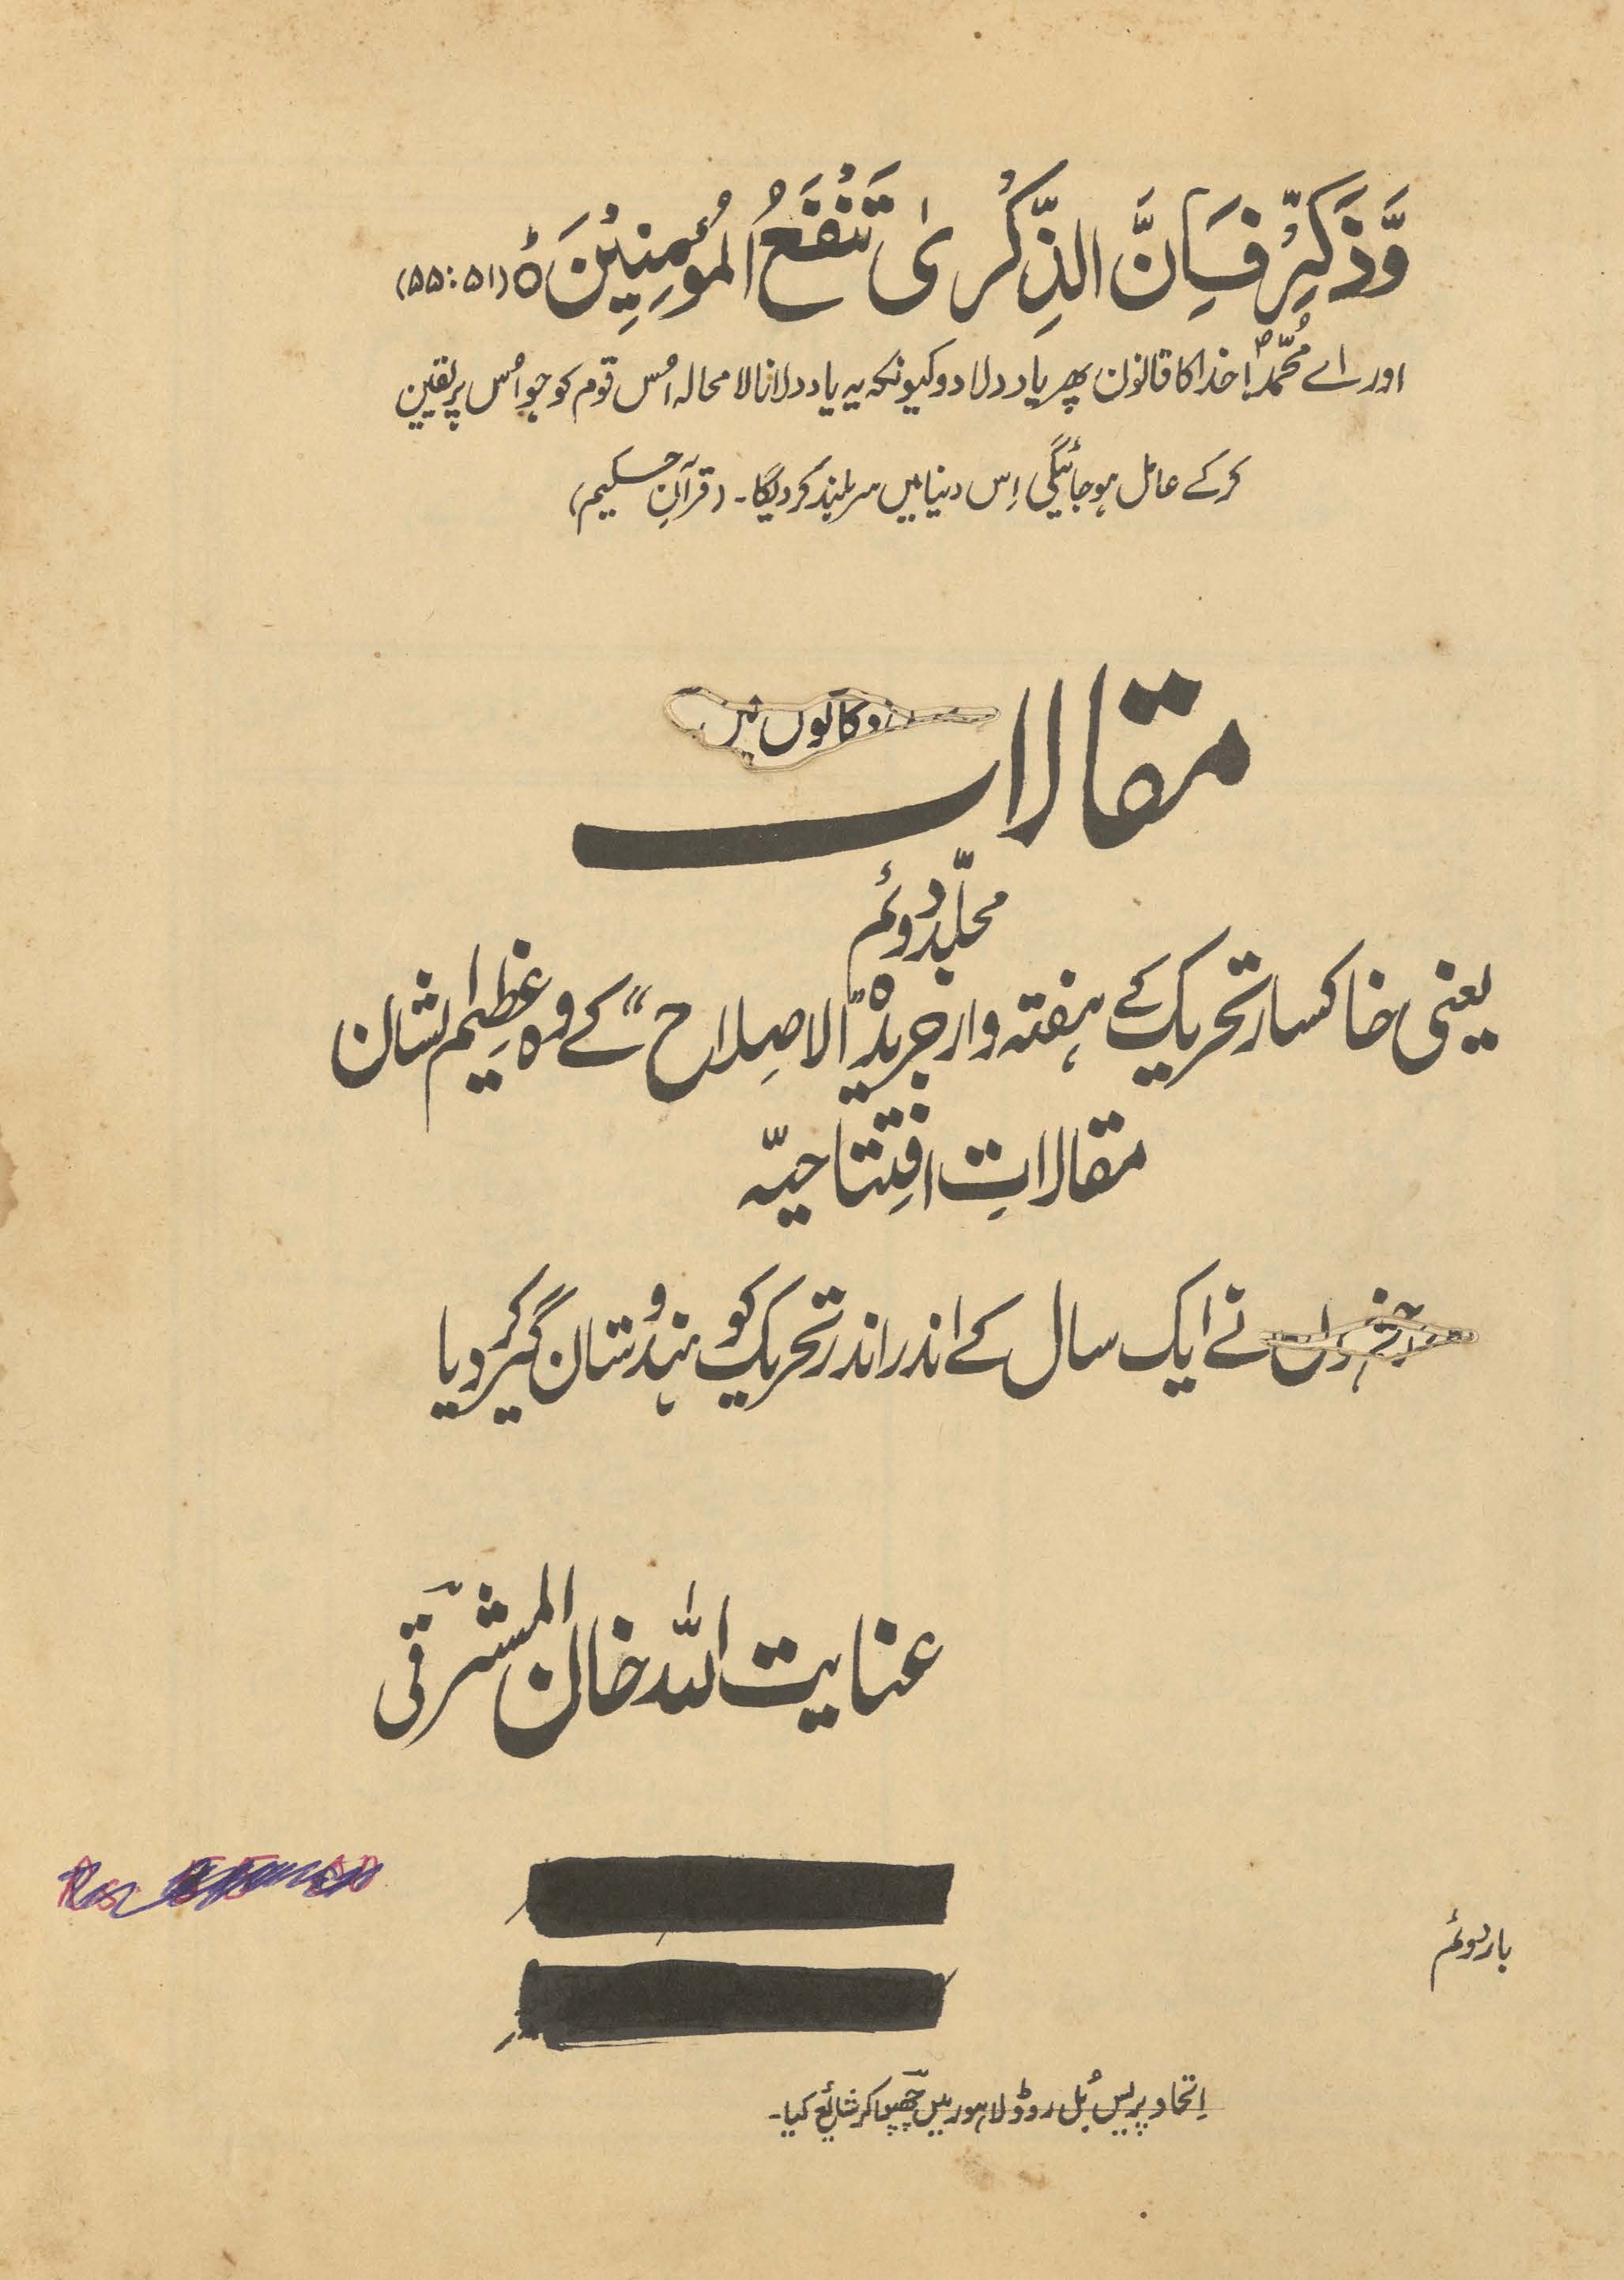 وَّذَكِّرْ فَاِنَّ الذِّكْرىٰ تَنْفَعُ الْمُؤْمِنِيْنَ ۵ (۵۵:۵۱)
اور اے مُحمّدؐ! خدا کا قانون پھر یاد دلا دو کیونکہ یہ یاد دلانا لا محالہ اُس قوم کو جو اُس پر یقین
کر کے عامل ہو جائیگی اِس دنیا میں سر بلند کر دیگا۔ (قرآنِ حکیم)
مقالات
دکانوں میں
مجلّد دوئم
یعنی خاکسار تحریک کے ہفتہ وار جریدۂ "الاصلاح" کے وہ عظیم الشان
مقالاتِ افتتاحیّہ
جنہوں نے ایک سال کے اندر اندر تحریک کو ہندوستان گیر کر دیا
عنایت اللہ خان المشرقی
بار دوئم
اِتحاد پریس بُل روڈ لاہور میں چھپا کر شائع کیا۔